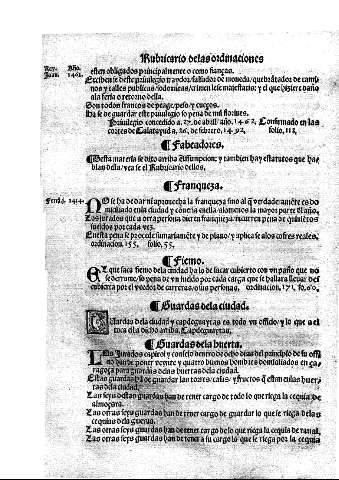 Rubricario delas ordinaciones
Rey. Año.
Joan. 1461.
esten obligados principalmente o como fianças.
Exceiben se deste priuilegio traydor, falsador de moneda, quebrãtador de cami
nos y calles publicas, sodomicas, crimen lese majestatis: y el que hiziere daño
ala feria o retorno della.
Son todos francos de peage, peso, y cuezos.
Ha se de guardar este priuilegio so pena de mil florines.
Priuilegio concedido a. 27. de abril año. 1462. Confirmado en las
cortes de Calatayud a. 26. de febrero. 1461. folio, 112,
¶ Fabeadores.
¶ Desta materia se dixo arriba Assumpcion: y tambien hay estatutos que ha
blan dello, vea se el Rubricario dellos.
¶ Franqueza.
Ferdi. 1414.
NO se ha de dar ni aprouecha la franqueza sino al q̃ verdaderamẽte es do
miciliado enla ciudad y cõtinua enella alomenos la mayor parte dl año.
Los jurados que a otra persona dieren franqueza: incurren pena de quinientos
sueldos por cada vez.
En esta pena se procede sumariamẽte y de plano: y aplica se alos cofres reales.
ordinacion. 155. folio, 55.
¶ Fiemo.
EL que saca fiemo dela ciudad ha lo de sacar cubierto con vn paño que no
se derrame, so pena de vn sueldo por cada carga que se hallara lleuar des
cubierta por el veedor de carreras, o sus personas. ordinacion. 171. fo. 60.
¶ Guardas dela ciudad.
GUardas dela ciudad y capdeguaytas es todo vn officio: y lo que a el
toca esta dicho arriba, Capdeguaytas.
¶ Guardas dela huerta.
LOs Jurados capitol y consejo dentro de ocho dias del principio de su offi
cio han de poner veynte y quatro buenos hombres domiciliados en ça
ragoça para guardas delas huertas dela ciudad.
Estas guardas hã de guardar las torres/ casas/ y fructos q̃ estan enlas huer
tas dela ciudad.
Las seys destas guardas han de tener cargo de todo lo que riega la cequia de
almoçara.
Las otras seys guardas han de tener cargo de guardar lo que se riega delas
cequias dela guerua.
Las otras seys guardas han de tener cargo de lo que riega la cequia de raual.
Las otras seys guardas han de tener a su cargo lo que se riega por la cequia